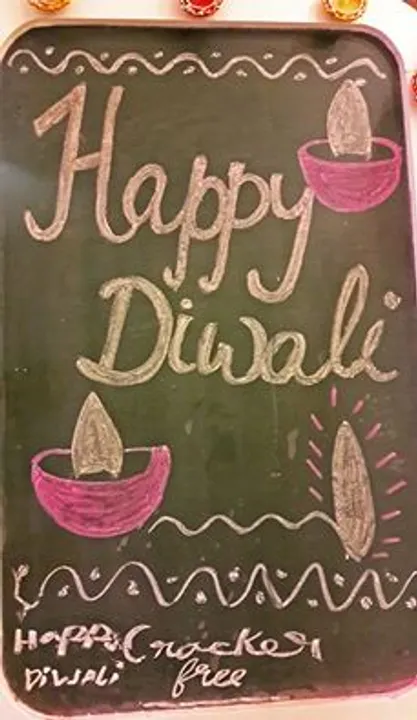 Happy
Diwali
Happy Cracker
Diwali free